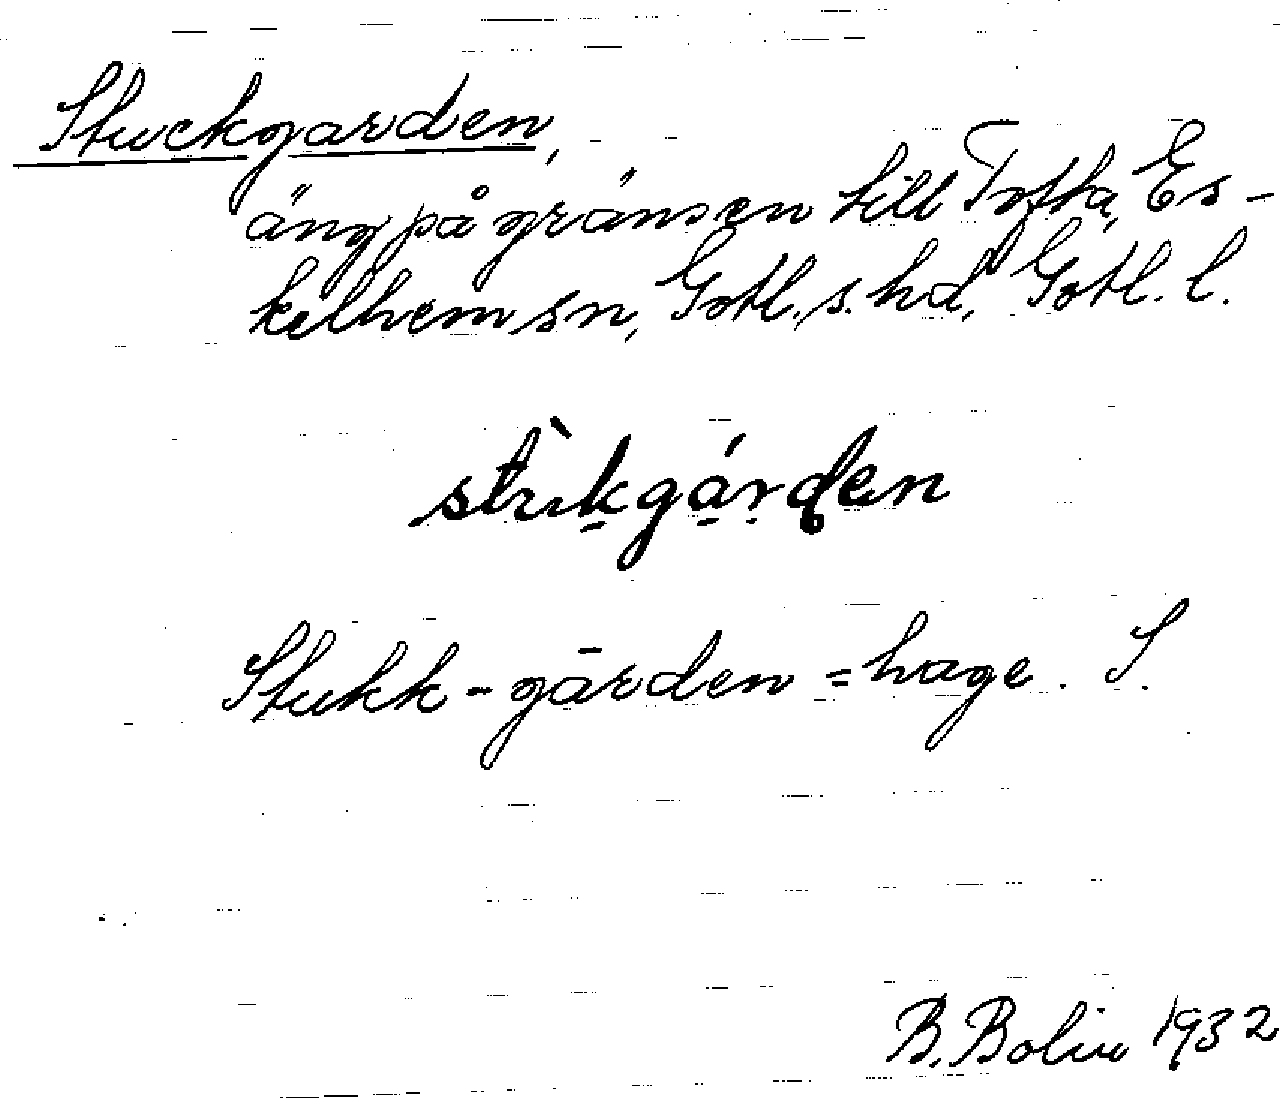 Stuckgarden,
äng på gränsen till Tofta, Es-
kelhem sn, Gotl. s. hd, Gotl. l.
stukgárden
Stukk-gārden = hage. S.
B. Bolin 1932